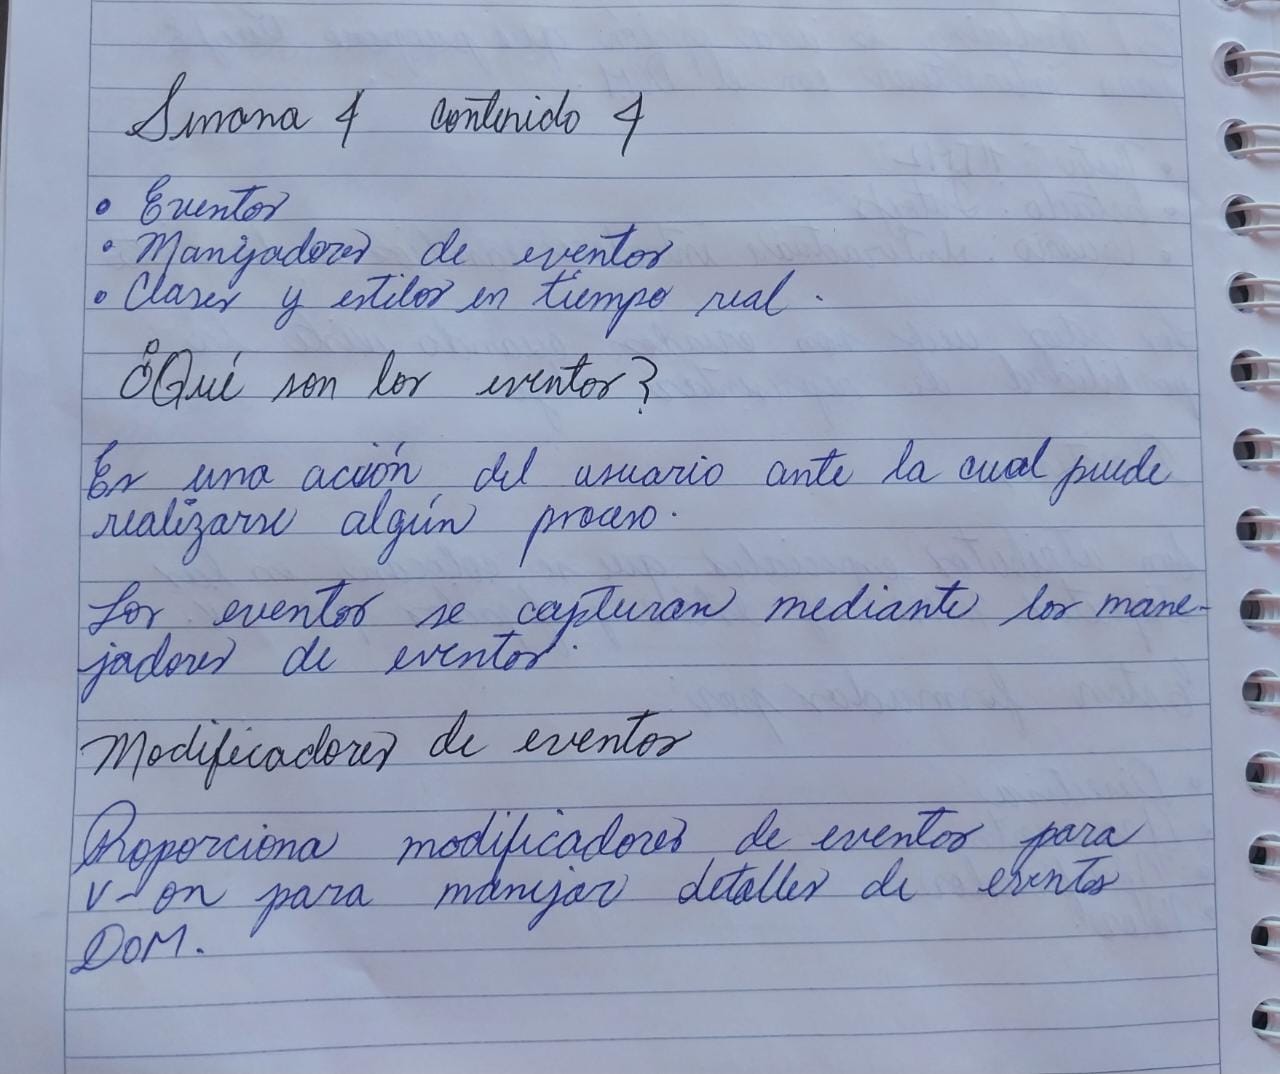 Semana 4 contenido 4
• Eventos
• Manejadores de eventos
• Clases y estilos en tiempo real.
¿Qué son los eventos?
Es una acción del usuario ante la cual puede
realizarse algún proceso.
Los eventos se capturan mediante los mane-
jadores de eventos.
Modificadores de eventos
Proporciona modificadores de eventos para
v-on para manejar detalles de evento
DOM.